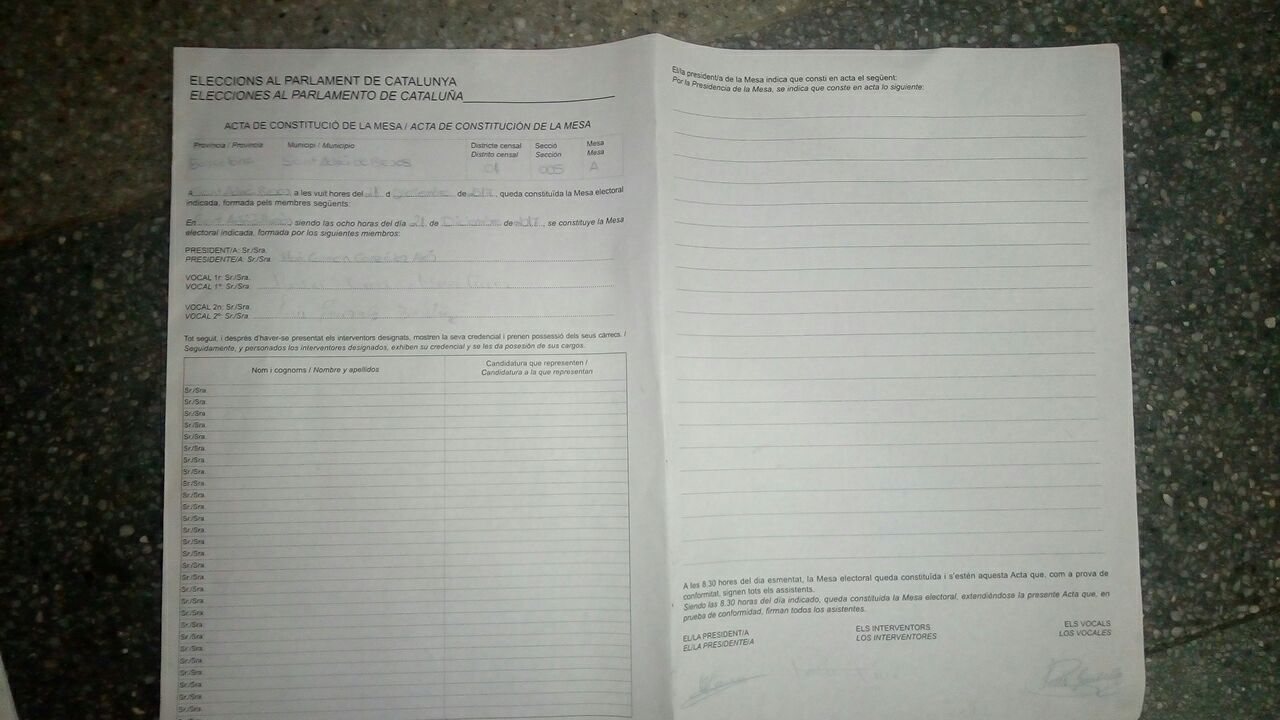 ELECCIONS AL PARLAMENT DE CATALUNYA
ELECCIONES AL PARLAMENTO DE CATALUÑA
ACTA DE CONSTITUCIÓ DE LA MESA / ACTA DE CONSTITUCIÓN DE LA MESA
Provincia / Provincia Municipi / Municipio Districte censal Secció Mesa
Distrito censal Sección Mesa
Barcelona Sant Adrià de Besòs 01 005 A
A Sant Adrià Besòs a les vuit hores del 21 d Desembre de 2017, queda constituïda la Mesa electoral
indicada, formada pels membres següents:
En Sant Adrià siendo las ocho horas del día 21 de Diciembre de 2017, se constituye la Mesa
electoral indicada, formada por los siguientes miembros:
PRESIDENT/A: Sr./Sra.
PRESIDENTE/A: Sr./Sra.
VOCAL 1r: Sr./Sra.
VOCAL 1º: Sr./Sra.
VOCAL 2n: Sr./Sra.
VOCAL 2º: Sr./Sra.
Tot seguit, i després d'haver-se presentat els interventors designats, mostren la seva credencial i prenen possessió dels seus càrrecs. /
Seguidamente, y personados los interventores designados, exhiben su credencial y se les da posesión de sus cargos.
Nom i cognoms / Nombre y apellidos Candidatura que representen /
Candidatura a la que representan
Sr./Sra.
Sr./Sra.
Sr./Sra.
Sr./Sra.
Sr./Sra.
Sr./Sra.
Sr./Sra.
Sr./Sra.
Sr./Sra.
Sr./Sra.
Sr./Sra.
Sr./Sra.
Sr./Sra.
Sr./Sra.
Sr./Sra.
Sr./Sra.
Sr./Sra.
Sr./Sra.
Sr./Sra.
Sr./Sra.
Sr./Sra.
Sr./Sra.
Sr./Sra.
Sr./Sra.
Sr./Sra.
Sr./Sra.
Sr./Sra.
Sr./Sra.
El/la president/a de la Mesa indica que consti en acta el següent:
Por la Presidencia de la Mesa, se indica que conste en acta lo siguiente:
A les 8.30 hores del dia esmentat, la Mesa electoral queda constituïda i s'estén aquesta Acta que, com a prova de
conformitat, signen tots els assistents.
Siendo las 8.30 horas del día indicado, queda constituida la Mesa electoral, extendiéndose la presente Acta que, en
prueba de conformidad, firman todos los asistentes.
EL/LA PRESIDENT/A ELS INTERVENTORS ELS VOCALS
EL/LA PRESIDENTE/A LOS INTERVENTORES LOS VOCALES